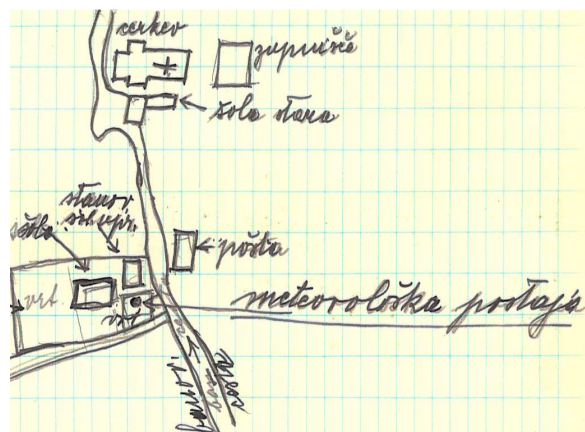 cerkev
župnišče
šola stara
stanov.
šol. upr.
šola
pošta
vrt
vrt
meteorološka postaja
cesta